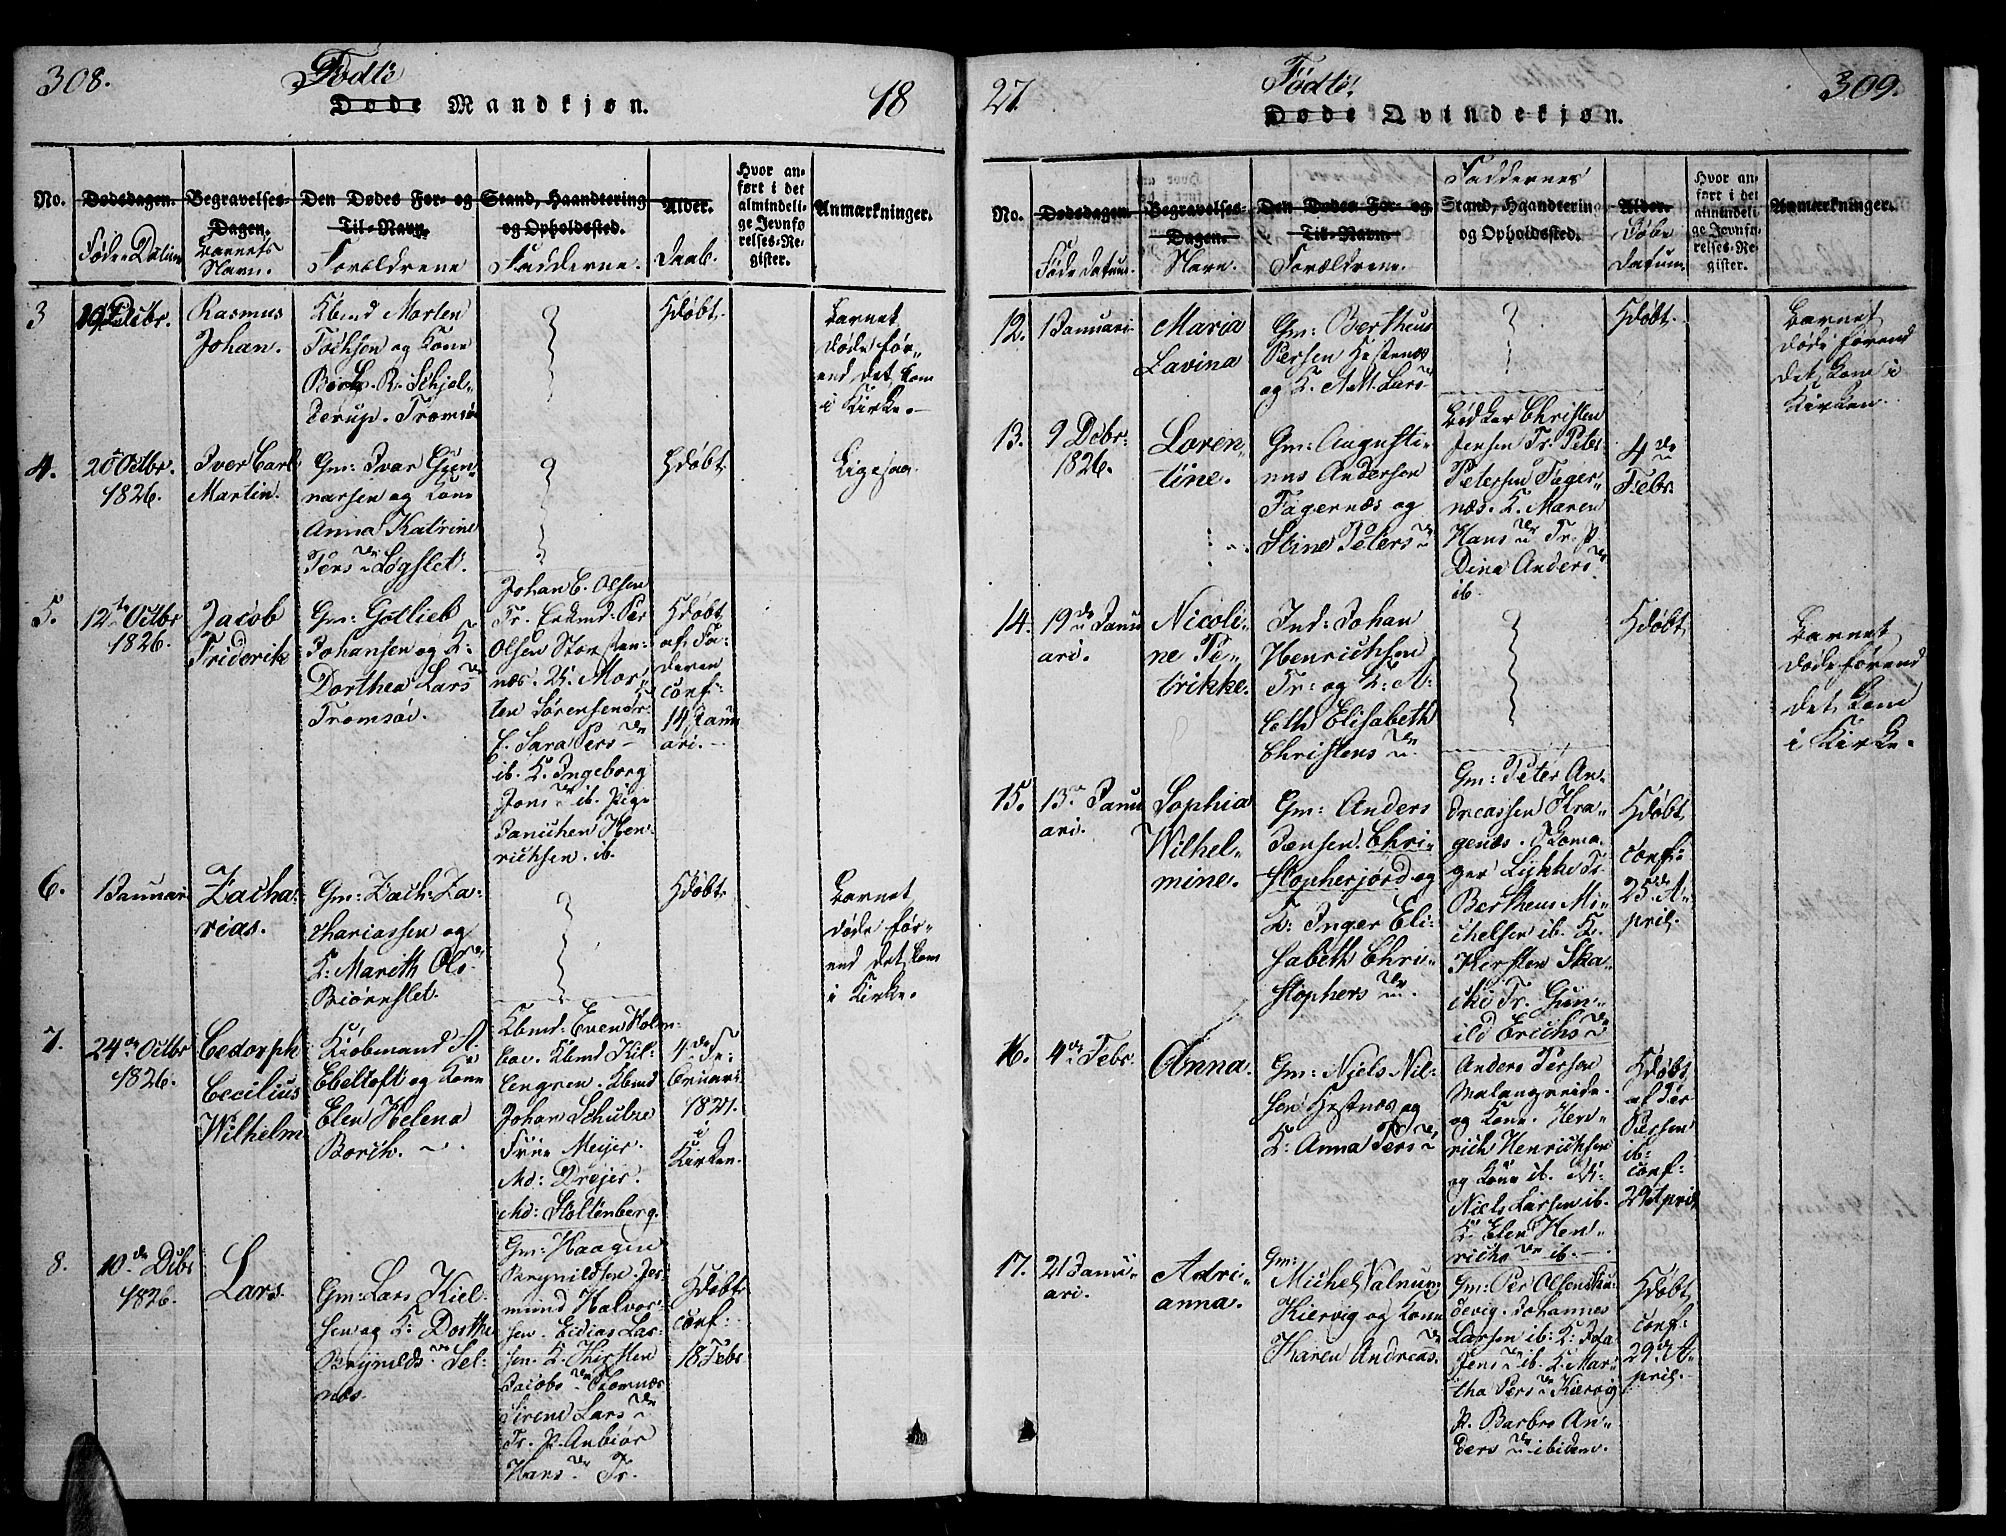 308.
Fødte
18
Døde Mandkjøn.
No.
Dødsdagen.
Føde Datum
Begravelses-
Dagen.
Barnets
Navn.
Den Dødes For- og
Til-Navn.
Forældrene
Stand, Haandtering
og Opholdssted.
Fadderne.
Alder.
Daab.
Hvor an-
ført i det
almindeli-
ge Jevnfø-
relses-Re-
gister.
Anmærkninger.
3
Decbr.
Rasmus
Johan.
Kbmd Morten
og Kone
R. Schjel-
derup. Tromsø
Hdøbt.
Barnet
døde før-
end det kom
i Kirke.
4.
20 Octbr.
1826.
Iver Carl
Martin.
Gm: Ivar Gun-
narsen og Kone
Anna Katrine
Pers Dr Løgslet.
Hdøbt
Ligesaa.
5.
12te Octbr
1826.
Jacob
Friderik
Gm: Gotlieb
Johansen og K:
Dorthea Lars Dr
Tromsøe.
Johan C. Olsen
Tr. Per
Olsen Storsten-
næs. Mor-
ten Sørensen Tr.
Sara Pers Dr
ib. K. Ingeborg
Jons Dr ib. Pige
Hen-
richsen. ib.
Hdøbt
af Fa-
deren
conf:
14 Janu
ari.
6.
1 Januari
Zacha-
rias.
Gm: Zach: Za-
chariassen og
K: Marith Ols Dr
Biørnslet.
Hdøbt
Barnet
døde før-
end det kom
i Kirke.
7.
24de Octbr
1826.
Cedorph
Cecilius
Wilhelm
Kiøbmand A.
Ebeltoft og Kone
Elen Helena
Borch.
Kbmd: Even Holm-
boe. Kbmd Kil-
lengren. Kbmd
Johan Schulze
Frue Meijer.
Md: Dreijer.
Md: Stoltenberg.
4de Fe-
bruari
1827.
i
Kirken.
8.
10de Dcbr
1826.
Lars.
Gm: Lars Kiel-
sen og K: Dorthe
Brynilds Dr Sel-
næs.
Gm: Haagen
Brynildsen
Halvor-
sen. Lar-
sen. K. Kirsten
Jacobs Dr
Sirene Lars Dr
Tr. P. Anbiør
Hans Dr Tr.
Hdøbt
conf:
18 Febr
27
Fødte
309.
Døde Qvindekjøn.
No.
Dødsdagen.
Føde Datum.
Begravelses-
Dagen.
Navn.
Den Dødes For- og
Til-Navn.
Forældrene.
Faddernes
Stand, Haandterin
og Opholdssted.
Alder.
Døbe
datum.
Hvor an-
ført i det
almindeli-
ge Jevnfø-
relses-Re-
gister.
Anmærkninger.
12.
1 Januari
Maria
Lavina
Gm: Bertheus
Persen Hestnæs
og K. A M. Lars Dr
Hdøbt.
Barnet
døde førend
det kom i
Kirken.
13.
9 Dcbr:
1826.
Loren-
tine.
Gm: Augusti-
nus Andersen
Fagernæs og
Stine Peters Dr
Bødker Christen
Jensen Tr. Peter
Petersen Fager-
næs. K. Maren
Hans Dr Tr. P.
Dina Anders Dr
ib.
4de
Febr.
14.
19de Janu
ari.
Nicoli-
ne Pe-
trikke.
Ind: Johan
Henrichsen
Tr: og K: A-
leth Elisabeth
Christens Dr
Hdøbt
Barnet
døde førend
det kom
i Kirke.
15.
13de Janu
ari.
Sophia
Wilhel-
mine.
Gm: Anders
Jensen Chri-
stopherjord og
K: Inger Eli-
sabeth Chri-
stophers Dr
Gm: Peter An-
dreassen Kra-
genæs. Skoma-
ger Lykke Tr.
Bertheus Mi-
chelsen ib. K.
Kersten Ska-
Tr. Gun-
ild Erichs Dr
Hdøbt
conf:
25de A-
pril.
16.
4de Febr.
Anna.
Gm: Niels Nil-
sen Hestnæs og
K: Anna Pers Dr
Anders Persen
Malangseide.
og Kone. Hen-
rich Henrichsen
og Kone ib.
Niels Larsen ib.
K. Elen Hen-
richs Dr ib.
Hdøbt
af Per
Persen
ib.
conf:
29 April
17.
21 Janu-
ari.
Adri-
anna.
Gm:
Michel Valnum
Kiervig og Kone
Karen Andreas Dr
Gm: Per Olsen
Johannes
Larsen ib: K: Ida
Jens Dr ib. K. Mar-
tha Pers Dr Kiervig
P. Barbro An-
ders Dr ibidem.
Hdøbt
conf:
29de A-
pril.